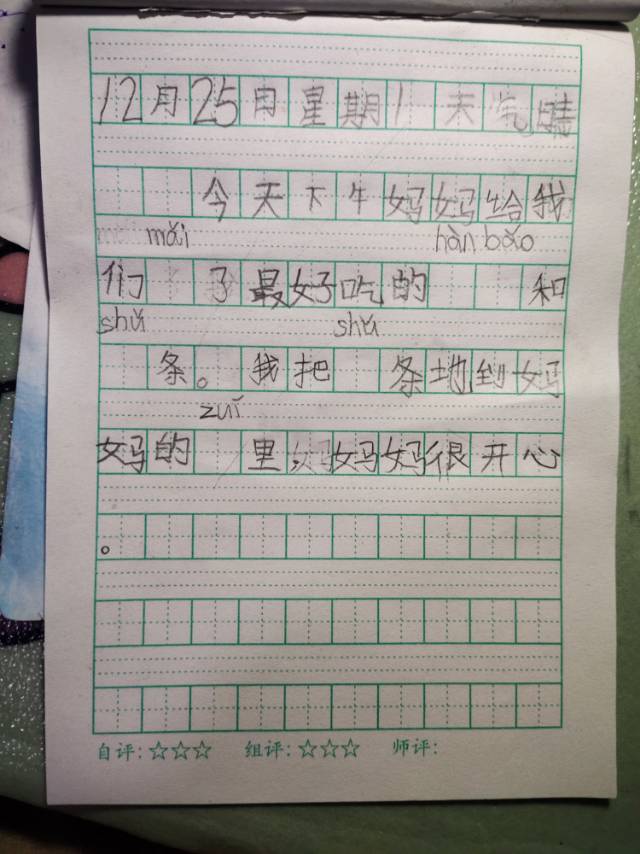 12月25日星期1 天气晴
今天下牛妈妈给我
mǎi hàn bǎo
们 了最好吃的 和
shǔ shǔ
条。我把 条地到妈
zuǐ
妈的 里,妈妈妈很开心
。
自评:☆☆☆ 组评:☆☆☆ 师评: